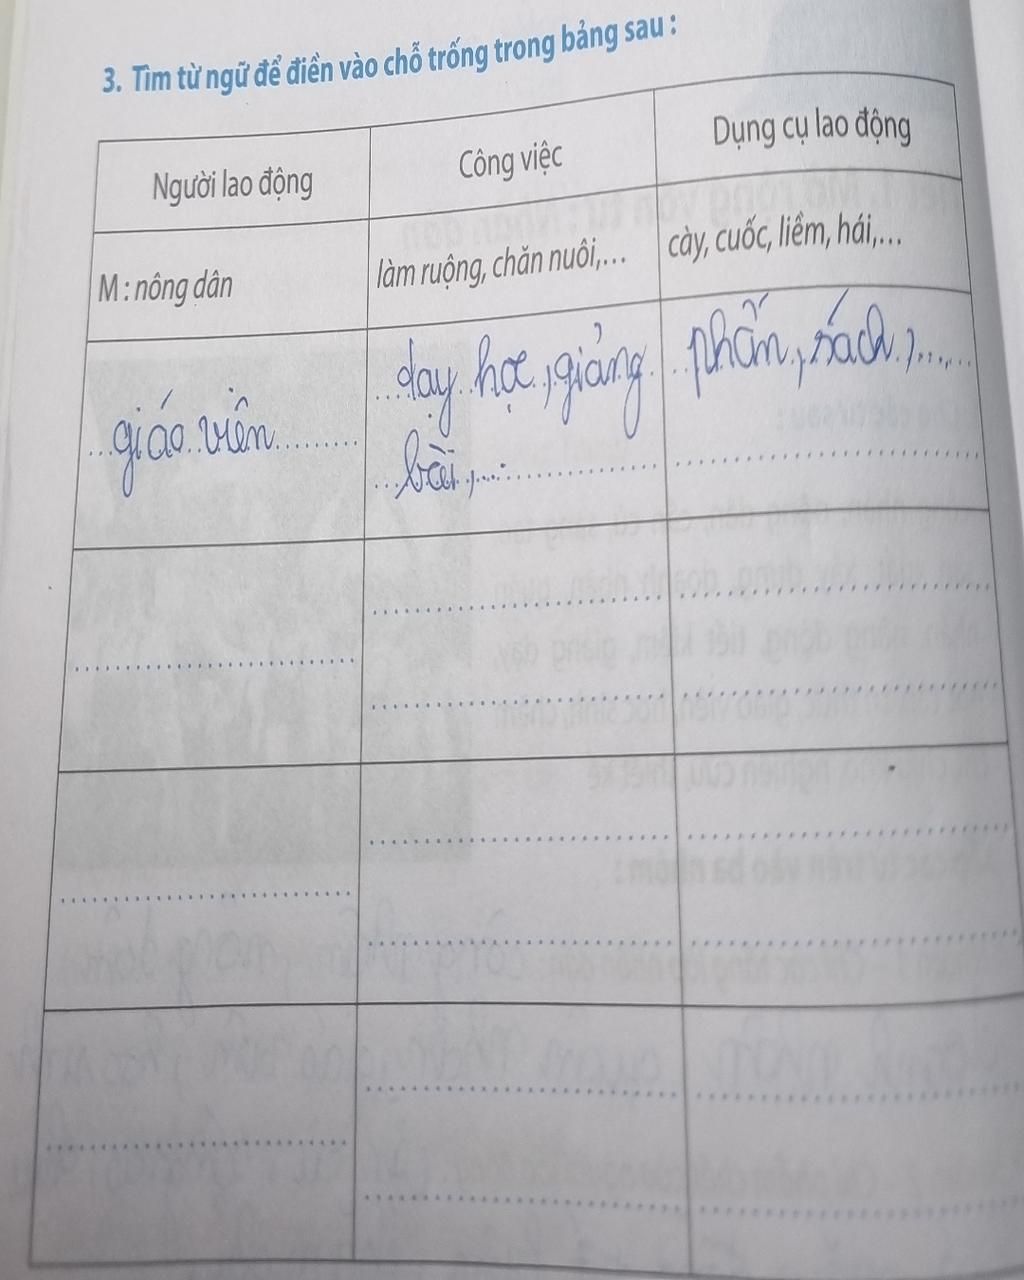 3. Tìm từ ngữ để điền vào chỗ trống trong bảng sau :
Người lao động
Công việc
Dụng cụ lao động
M : nông dân
làm ruộng, chăn nuôi,...
cày, cuốc, liềm, hái,...
giáo viên
dạy học, giảng
bài,...
phấn, sách,...